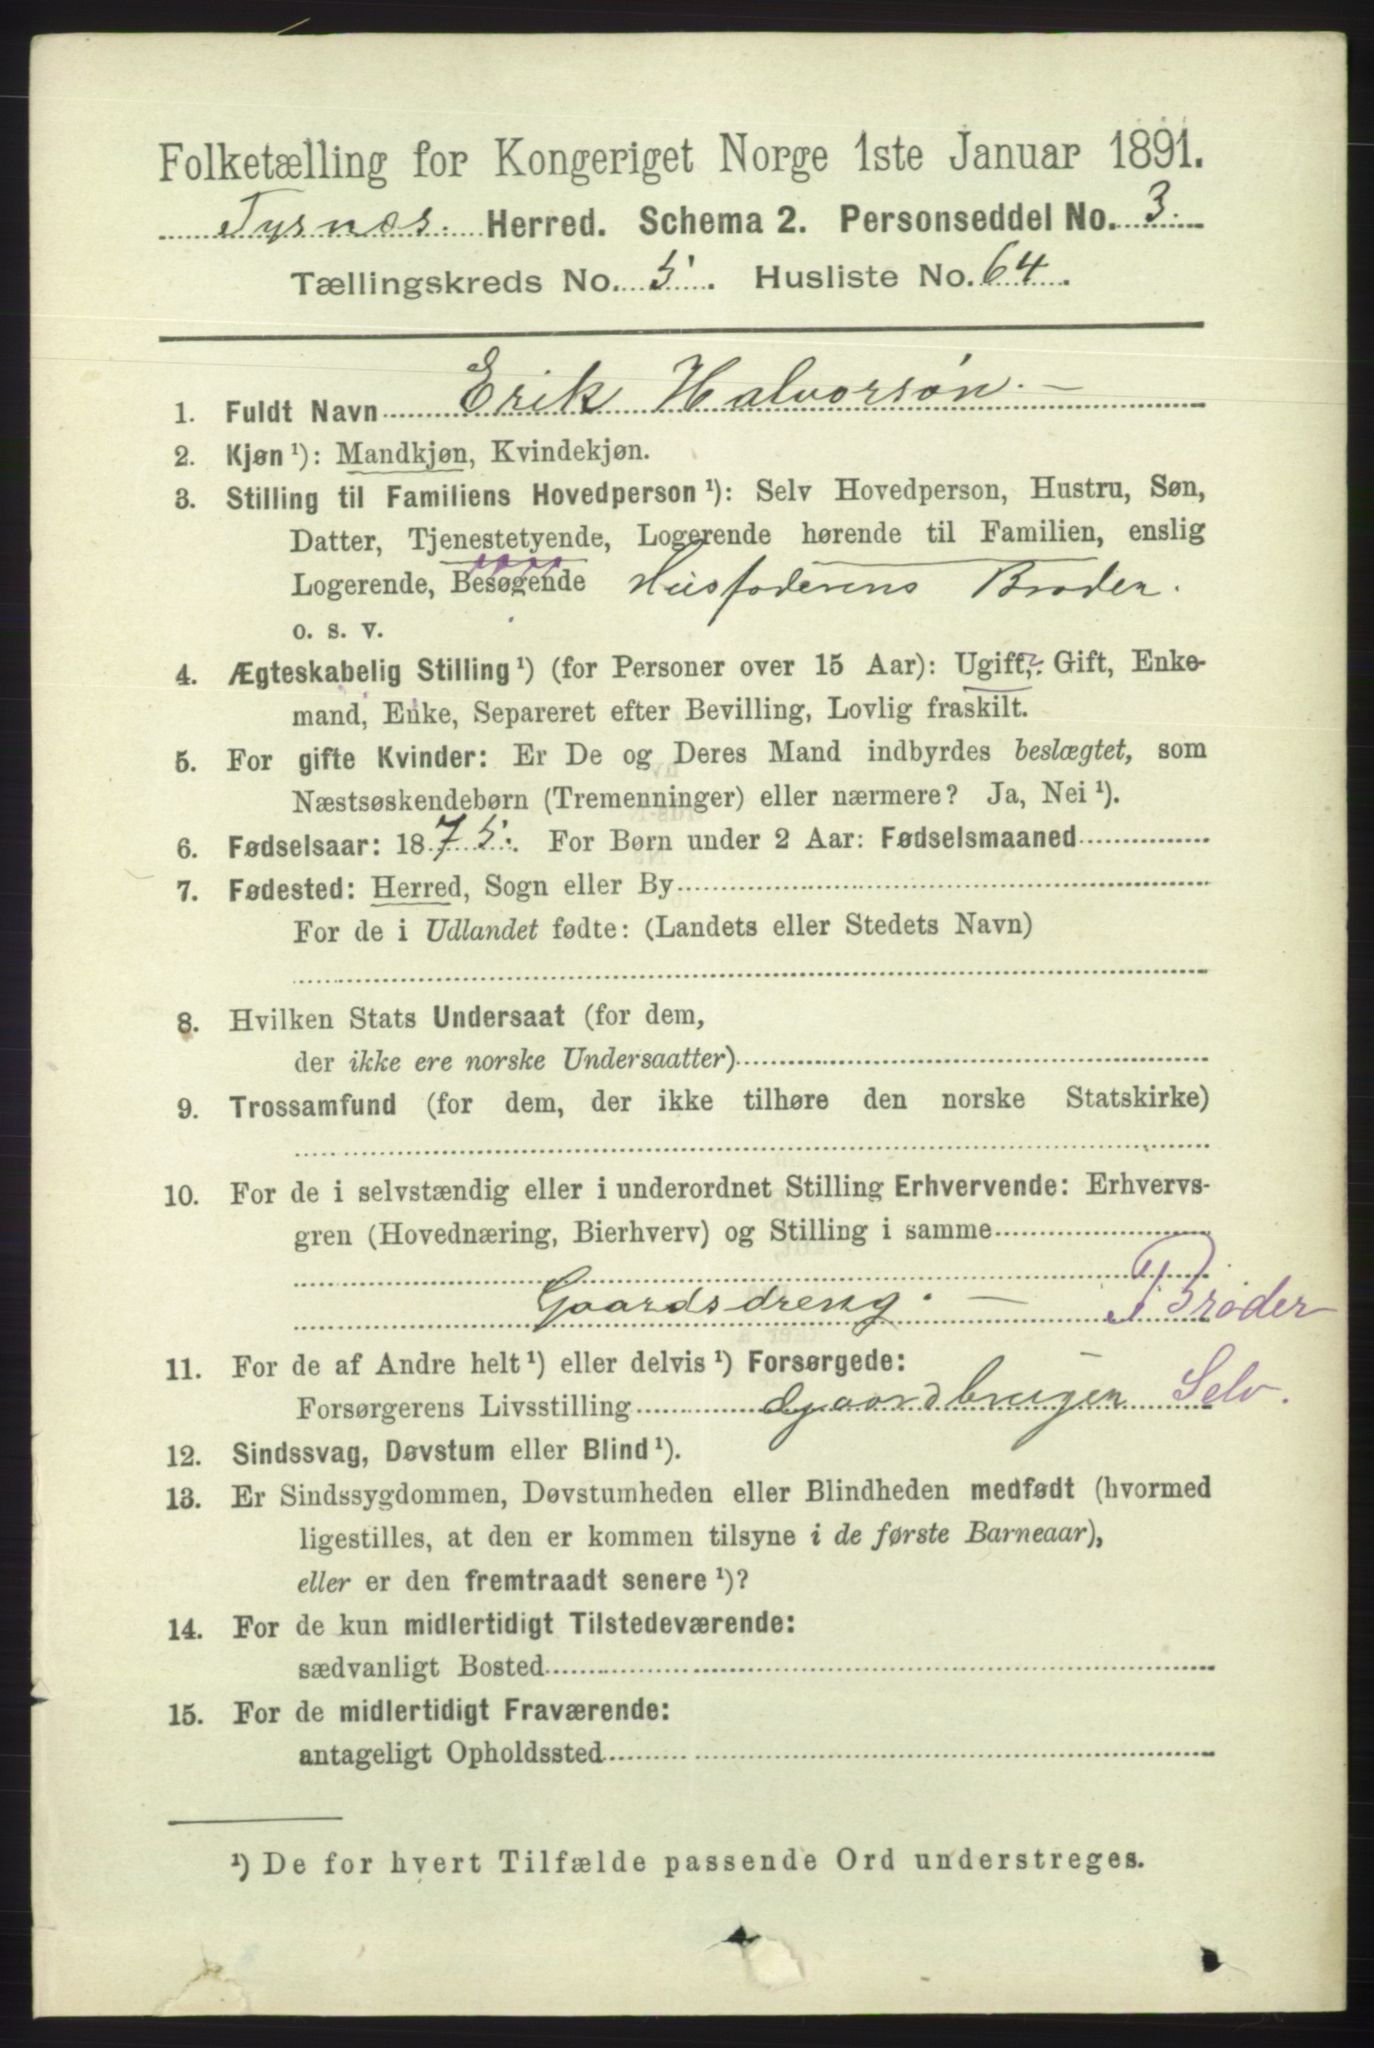 Folketælling for Kongeriget Norge 1ste Januar 1891.
Tysnæs. Herred. Schema 2. Personseddel No. 3.
Tællingskreds No. 5. Husliste No. 64.
1. Fuldt Navn Erik Halvorsøn. —
2. Kjøn ¹): Mandkjøn, Kvindekjøn.
3. Stilling til Familiens Hovedperson ¹): Selv Hovedperson, Hustru, Søn,
Datter, Tjenestetyende, Logerende hørende til Familien, enslig
Logerende, Besøgende Husfaderens Broder.
o. s. v.
4. Ægteskabelig Stilling ¹) (for Personer over 15 Aar): Ugift, Gift, Enke-
mand, Enke, Separeret efter Bevilling, Lovlig fraskilt.
5. For gifte Kvinder: Er De og Deres Mand indbyrdes beslægtet, som
Næstsøskendebørn (Tremenninger) eller nærmere? Ja, Nei ¹).
6. Fødselsaar: 1875. For Børn under 2 Aar: Fødselsmaaned
7. Fødested: Herred, Sogn eller By
For de i Udlandet fødte: (Landets eller Stedets Navn)
8. Hvilken Stats Undersaat (for dem,
der ikke ere norske Undersaatter)
9. Trossamfund (for dem, der ikke tilhøre den norske Statskirke)
10. For de i selvstændig eller i underordnet Stilling Erhvervende: Erhvervs-
gren (Hovednæring, Bierhverv) og Stilling i samme
Gaardsdreng. — Broder
11. For de af Andre helt ¹) eller delvis ¹) Forsørgede:
Forsørgerens Livsstilling Gaardbruger Selv.
12. Sindssvag, Døvstum eller Blind ¹).
13. Er Sindssygdommen, Døvstumheden eller Blindheden medfødt (hvormed
ligestilles, at den er kommen tilsyne i de første Barneaar),
eller er den fremtraadt senere ¹)?
14. For de kun midlertidigt Tilstedeværende:
sædvanligt Bosted
15. For de midlertidigt Fraværende:
antageligt Opholdssted
¹) De for hvert Tilfælde passende Ord understreges.